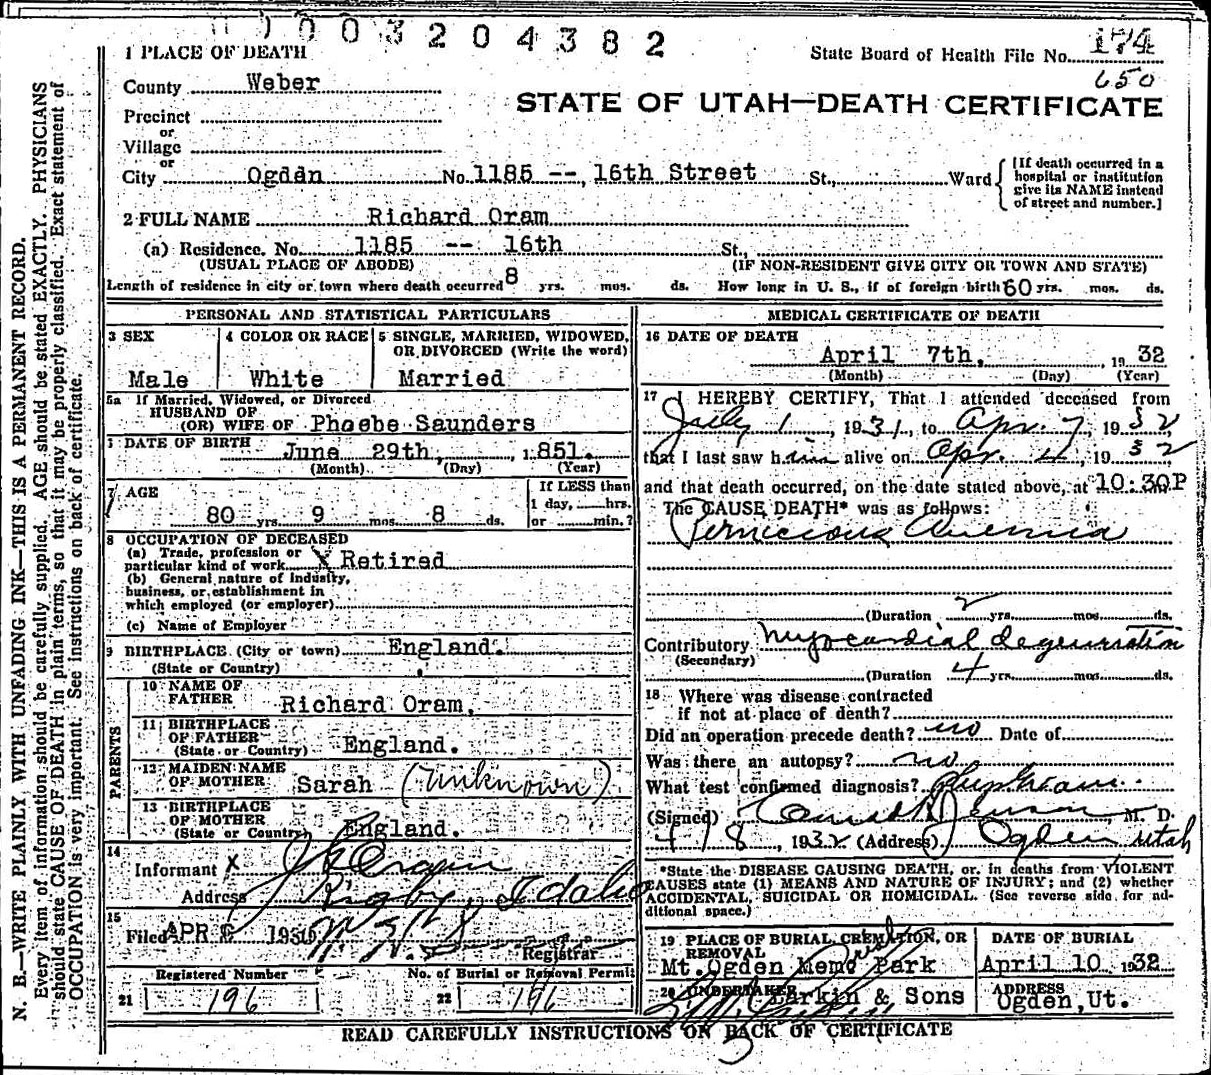 0003204382
1 PLACE OF DEATH
State Board of Health File No. 174
County Weber
650
STATE OF UTAH—DEATH CERTIFICATE
Precinct
or
Village
or
City Ogden No. 1185 -- 16th Street St., Ward
[If death occurred in a hospital or institution give its NAME instead of street and number.]
2 FULL NAME Richard Oram
(a) Residence. No. 1185 -- 16th St.,
(USUAL PLACE OF ABODE) (IF NON-RESIDENT GIVE CITY OR TOWN AND STATE)
Length of residence in city or town where death occurred 8 yrs. mos. ds. How long in U. S., if of foreign birth 60 yrs. mos. ds.
PERSONAL AND STATISTICAL PARTICULARS
3 SEX
Male
4 COLOR OR RACE
White
5 SINGLE, MARRIED, WIDOWED, OR DIVORCED (Write the word)
Married
5a If Married, Widowed, or Divorced
HUSBAND OF
(OR) WIFE OF Phoebe Saunders
DATE OF BIRTH June 29th, 1851.
(Month) (Day) (Year)
7 AGE
80 yrs. 9 mos. 8 ds.
If LESS than
1 day, hrs.
or min.?
8 OCCUPATION OF DECEASED
(a) Trade, profession or
particular kind of work X Retired
(b) General nature of industry,
business, or establishment in
which employed (or employer)
(c) Name of Employer
9 BIRTHPLACE (City or town) England.
(State or Country)
PARENTS
10 NAME OF
FATHER Richard Oram,
11 BIRTHPLACE
OF FATHER
(State or Country) England.
12 MAIDEN NAME
OF MOTHER Sarah (Unknown)
13 BIRTHPLACE
OF MOTHER
(State or Country) England.
14
Informant x Oram
Address Rigby, Idaho
15
Filed APR 193
Registrar
Registered Number No. of Burial or Removal Permit
21 196 22 196
MEDICAL CERTIFICATE OF DEATH
16 DATE OF DEATH
April 7th, 1932
(Month) (Day) (Year)
17 I HEREBY CERTIFY, That I attended deceased from
July 1, 1931, to Apr. 7, 1932
that I last saw him alive on Apr. 4, 1932
and that death occurred, on the date stated above, at 10:30P
The CAUSE DEATH* was as follows:
Pernicious Anemia
(Duration 2 yrs. mos. ds.
Contributory Myocardial degeneration
(Secondary)
(Duration 4 yrs. mos. ds.
18 Where was disease contracted
if not at place of death?
Did an operation precede death? no Date of
Was there an autopsy? no
What test confirmed diagnosis?
(Signed) M. D.
4/8, 1932 (Address) Ogden Utah
*State the DISEASE CAUSING DEATH, or, in deaths from VIOLENT
CAUSES state (1) MEANS AND NATURE OF INJURY; and (2) whether
ACCIDENTAL, SUICIDAL OR HOMICIDAL. (See reverse side for ad-
ditional space.)
19 PLACE OF BURIAL, CREMATION, OR
REMOVAL
Mt. Ogden Memo Park
DATE OF BURIAL
April 10 1932
20 UNDERTAKER
Larkin & Sons
ADDRESS
Ogden, Ut.
READ CAREFULLY INSTRUCTIONS ON BACK OF CERTIFICATE
N. B.—WRITE PLAINLY, WITH UNFADING INK—THIS IS A PERMANENT RECORD.
Every item of information should be carefully supplied. AGE should be stated EXACTLY. PHYSICIANS
should state CAUSE OF DEATH in plain terms, so that it may be properly classified. Exact statement of
OCCUPATION is very important. See instructions on back of certificate.